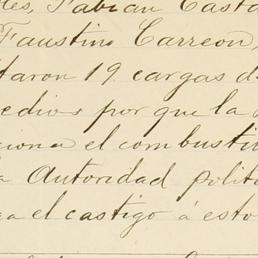 les, Fabian Casta
Faustino Carreon,
taron 19 cargas d
edios por que la
ciona el combusti
a Autoridad polit
ga el castigo á esto